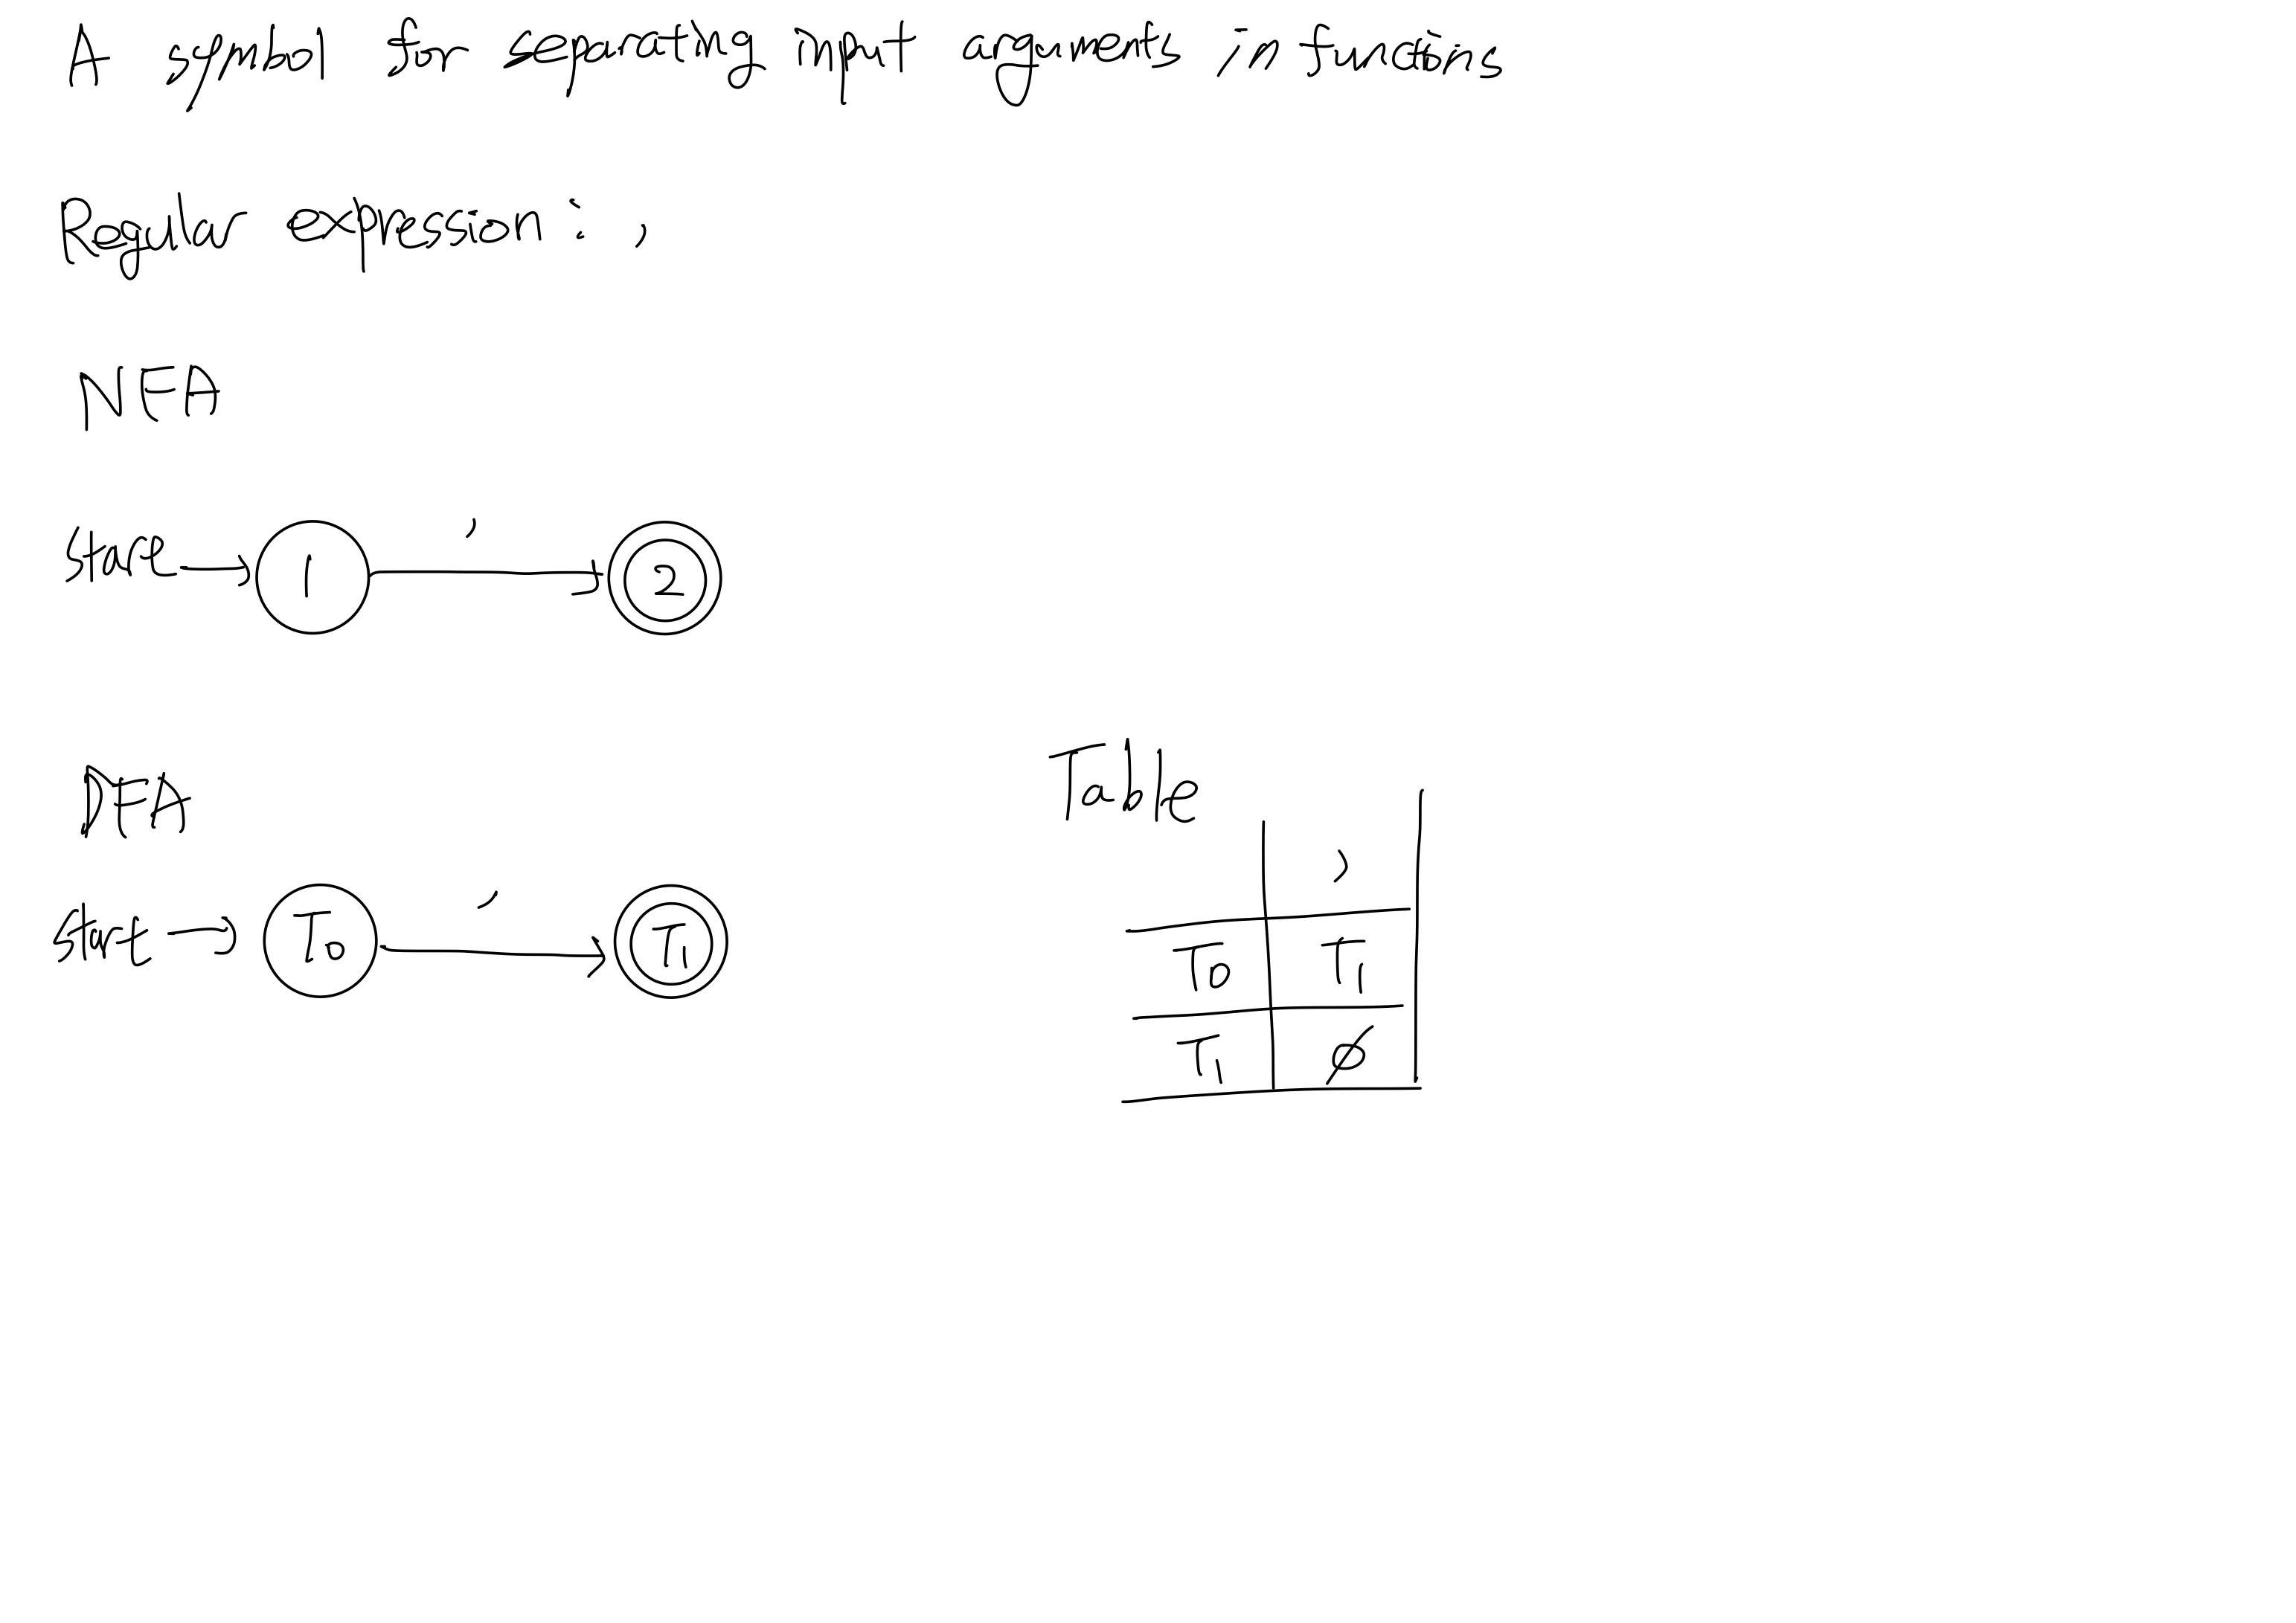 A symbol for separating input arguments in functions
Regular expression : ,
NFA
,
1
2
DFA
Table
,
start
T0
,
T1
T0
T1
T1
∅